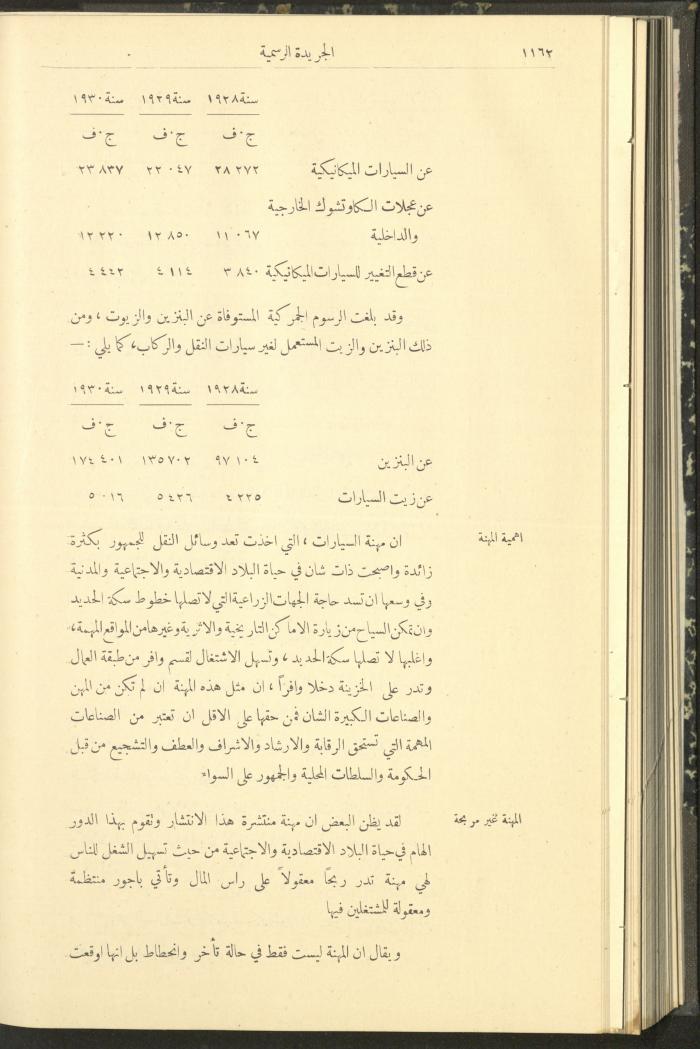 ١١٦٢ الجريدة الرسمية
سنة ١٩٢٨ سنة ١٩٢٩ سنة ١٩٣٠
ج٠ف ج٠ف ج٠ف
عن السيارات الميكانيكية ٢٨ ٢٧٢ ٢٢ ٠٤٧ ٢٣ ٨٣٧
عن عجلات الكاوتشوك الخارجية
والداخلية ١١ ٠٦٧ ١٢ ٨٥٠ ١٢ ٢٢٠
عن قطع التغيير للسيارات الميكانيكية ٣ ٨٤٠ ٤ ١١٤ ٤ ٤٤٢
وقد بلغت الرسوم الجمركية المستوفاة عن البنزين والزيوت ، ومن
ذلك البنزين والزيت المستعمل لغير سيارات النقل والركاب، كما يلي : —
سنة ١٩٢٨ سنة ١٩٢٩ سنة ١٩٣٠
ج٠ف ج٠ف ج٠ف
عن البنزين ٩٧ ١٠٤ ١٣٥ ٧٠٢ ١٧٤ ٤٠١
عن زيت السيارات ٤ ٢٢٥ ٥ ٤٢٦ ٥ ٠١٦
اهمية المهنة
ان مهنة السيارات ، التي اخذت تعد وسائل النقل للجمهور بكثرة
زائدة واصبحت ذات شان في حياة البلاد الاقتصادية والاجتماعية والمدنية
وفي وسعها ان تسد حاجة الجهات الزراعية التي لا تصلها خطوط سكة الحديد
وان تمكن السياح من زيارة الاماكن التاريخية والاثرية وغيرها من المواقع المهمة ،
واغلبها لا تصلها سكة الحديد ، وتسهل الاشتغال لقسم وافر من طبقة العمال
وتدر على الخزينة دخلا وافراً ، ان مثل هذه المهنة ان لم تكن من المهن
والصناعات الكبيرة الشان فمن حقها على الاقل ان تعتبر من الصناعات
المهمة التي تستحق الرقابة والارشاد والاشراف والعطف والتشجيع من قبل
الحكومة والسلطات المحلية والجمهور على السواء
المهنة غير مربحة
لقد يظن البعض ان مهنة منتشرة هذا الانتشار وتقوم بهذا الدور
الهام في حياة البلاد الاقتصادية والاجتماعية من حيث تسهيل الشغل للناس
لهي مهنة تدر ربحاً معقولاً على راس المال وتأتي باجور منتظمة
ومعقولة للمشتغلين فيها
ويقال ان المهنة ليست فقط في حالة تأخر وانحطاط بل انها اوقعت